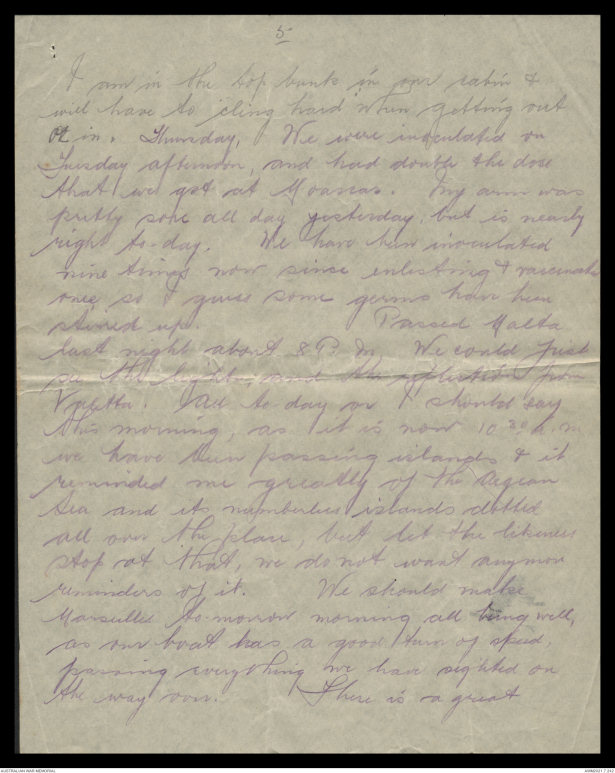 5
I am in the top bunk in our cabin &
will have to cling hard when getting out
or in. Thursday, We were inoculated on
Tuesday afternoon, and had double the dose
that we got at Moascar. My arm was
pretty sore all day yesterday, but is nearly
right to-day. We have been inoculated
nine times now since enlisting & vaccinated
once so I guess some germs have been
stirred up. Passed Malta
last night about 8 P. M. We could just
see the lights and the reflection from
Valetta. All to-day or I should say
this morning, as it is now 10 30 a.m
we have been passing islands & it
reminded me greatly of the Aegean
Sea and its numberless islands dotted
all over the place, but let the likeness
stop at that, we do not want anymore
reminders of it. We should make
Marseilles to-morrow morning all being well,
as our boat has a good turn of speed,
passing everything we have sighted on
the way over. There is a great
AUSTRALIAN WAR MEMORIAL